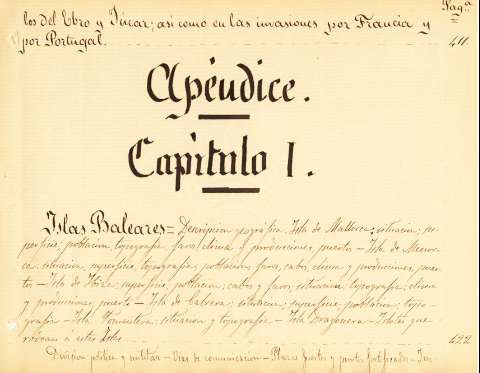 Pagª
los del Ebro y Júcar; así como en las invasiones por Francia y
por Portugal. 411.
Apéndice.
Capítulo I.
Islas Baleares = Descripcion geográfica, Isla de Mallorca; situacion, su-
perficie, poblacion, topografía, faros, clima y producciones, puertos - Isla de Menor-
ca: situacion, superficie, topografía, poblacion, faros, cabos, clima y producciones, puer-
tos - Isla de Ibiza: superficie, poblacion, cabos y faros, situacion, topografía, clima
y producciones, puerto - Isla de Cabrera: situacion, superficie, poblacion, topo-
grafía - Isla Formentera; situacion y topografía - Isla Dragonera - Islotes que
rodean a estas Islas 422
Division política y militar - Vias de comunicacion - Plazas fuertes y puntos fortificados - In-